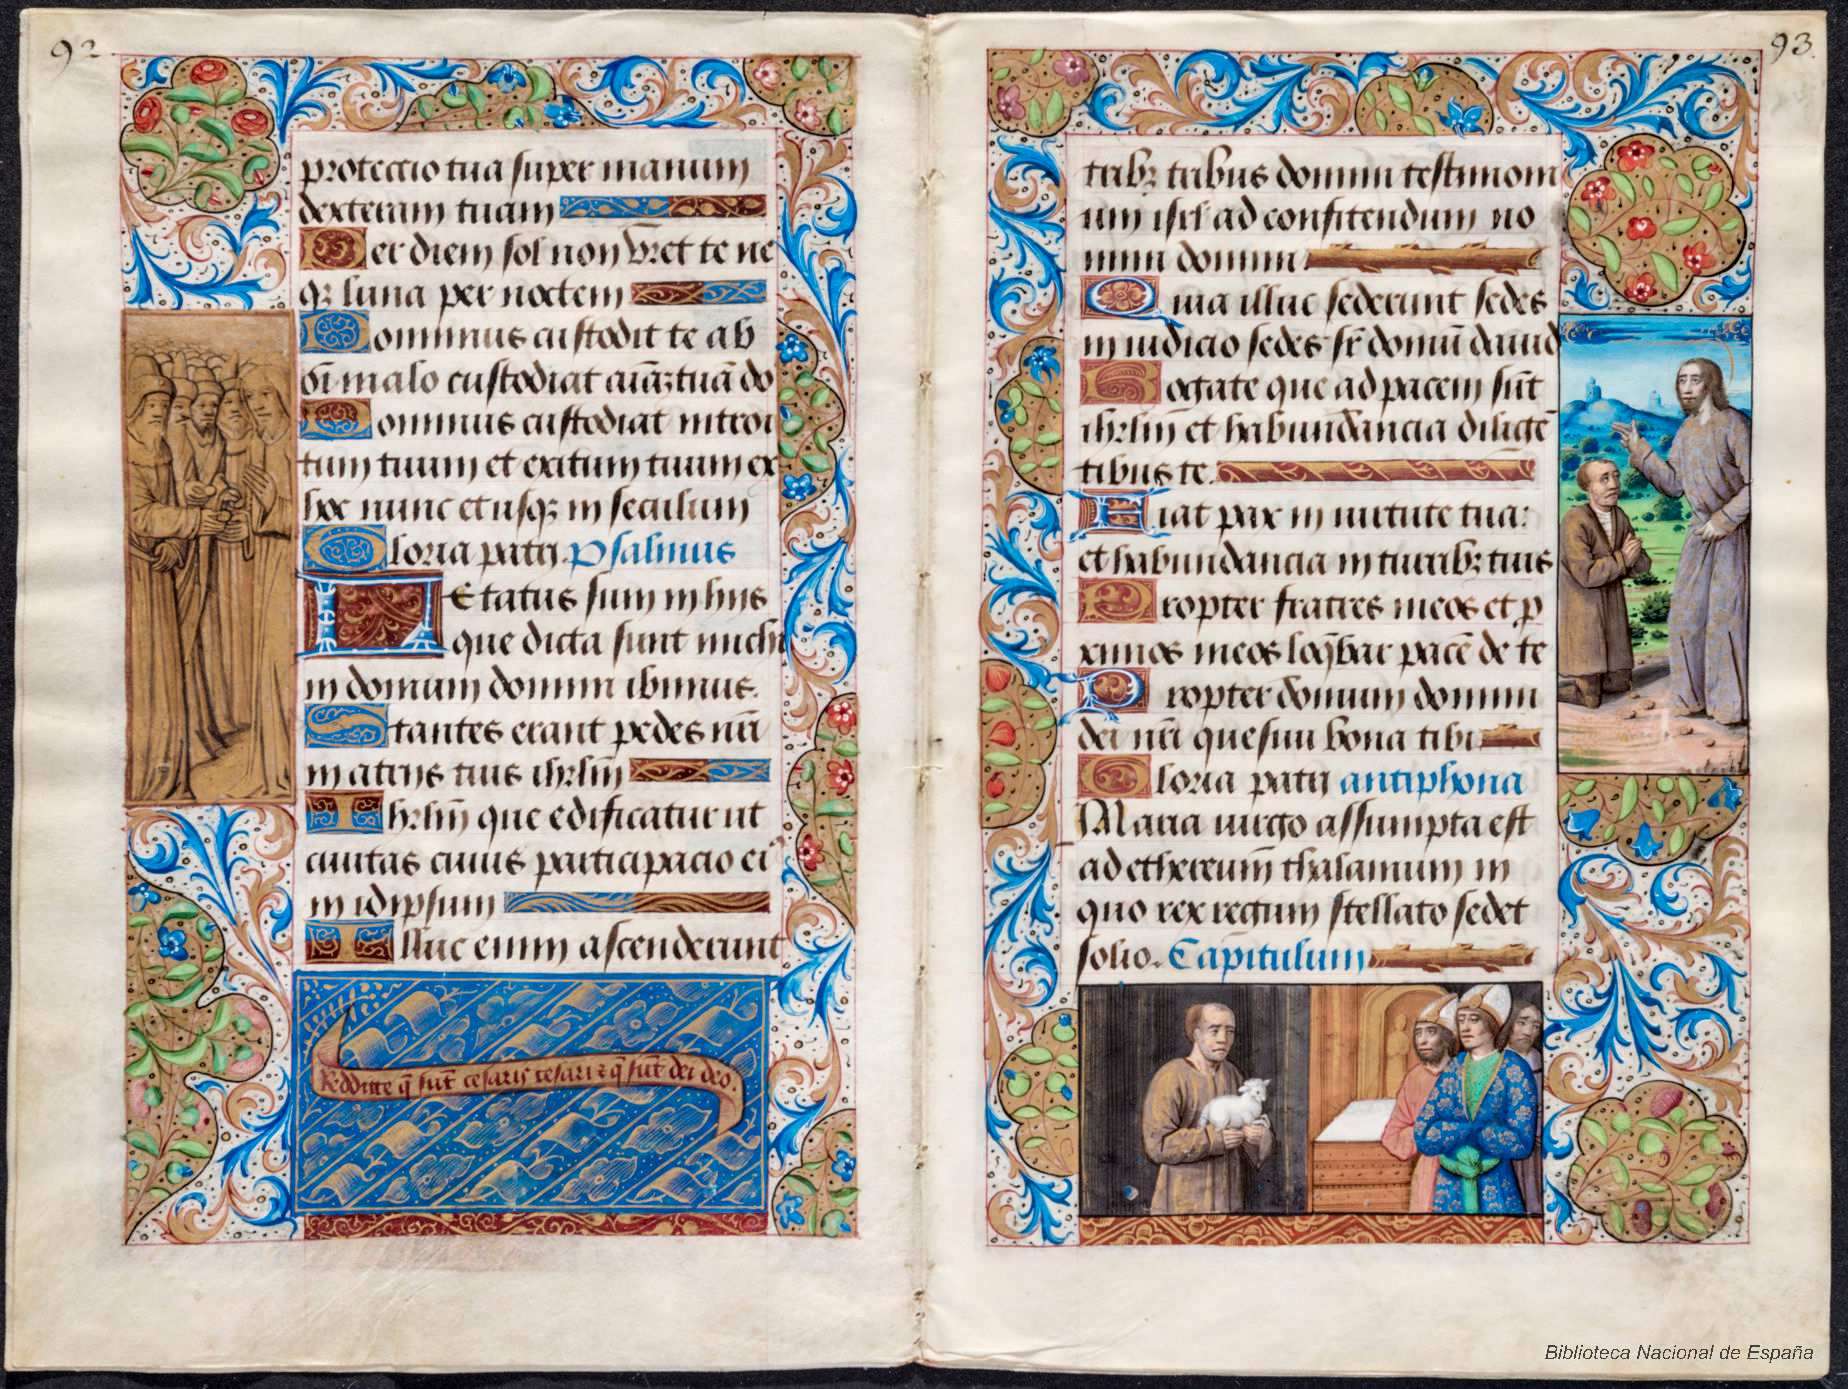 92.
protectio tua super manum
dexteram tuam
Per diem sol non vret te ne
qꝫ luna per noctem
Dominus custodit te ab
oi malo custodiat aiāꝫ tuā do
Dominus custodiat introi
tum tuum et exitum tuum ex
hoc nunc et usqꝫ in seculum
Gloria patri. Psalmus
LEtatus sum in hiis
que dicta sunt michi
in domum domini ibimus.
Stantes erant pedes nr̄i
in atriis tuis ihrlm̄
Ihrlm̄ que edificatur ut
ciuitas cuius participacio ei
in idipsum
Illuc enim ascenderunt
Reddite q̄ sūt cesaris cesari ⁊ q̄ sūt dei deo.
93.
tribꝫ tribus domini testimoni
um isrl̄ ad confitendum no
mini domini
Quia illic sederunt sedes
in iudicio sedes sr̄ domū dauid
Rogate que ad pacem sūt
ihrlm̄ et habundancia diligē
tibus te.
Fiat pax in uirtute tua:
et habundancia in turribꝫ tuis
Propter fratres meos et ꝓ
ximos meos loq̄bar pacē de te
Propter domum domini
dei nr̄i quesiui bona tibi
Gloria patri antiphona
Maria uirgo assumpta est
ad ethereum thalamum in
quo rex regum stellato sedet
solio. Capitulum
Biblioteca Nacional de España